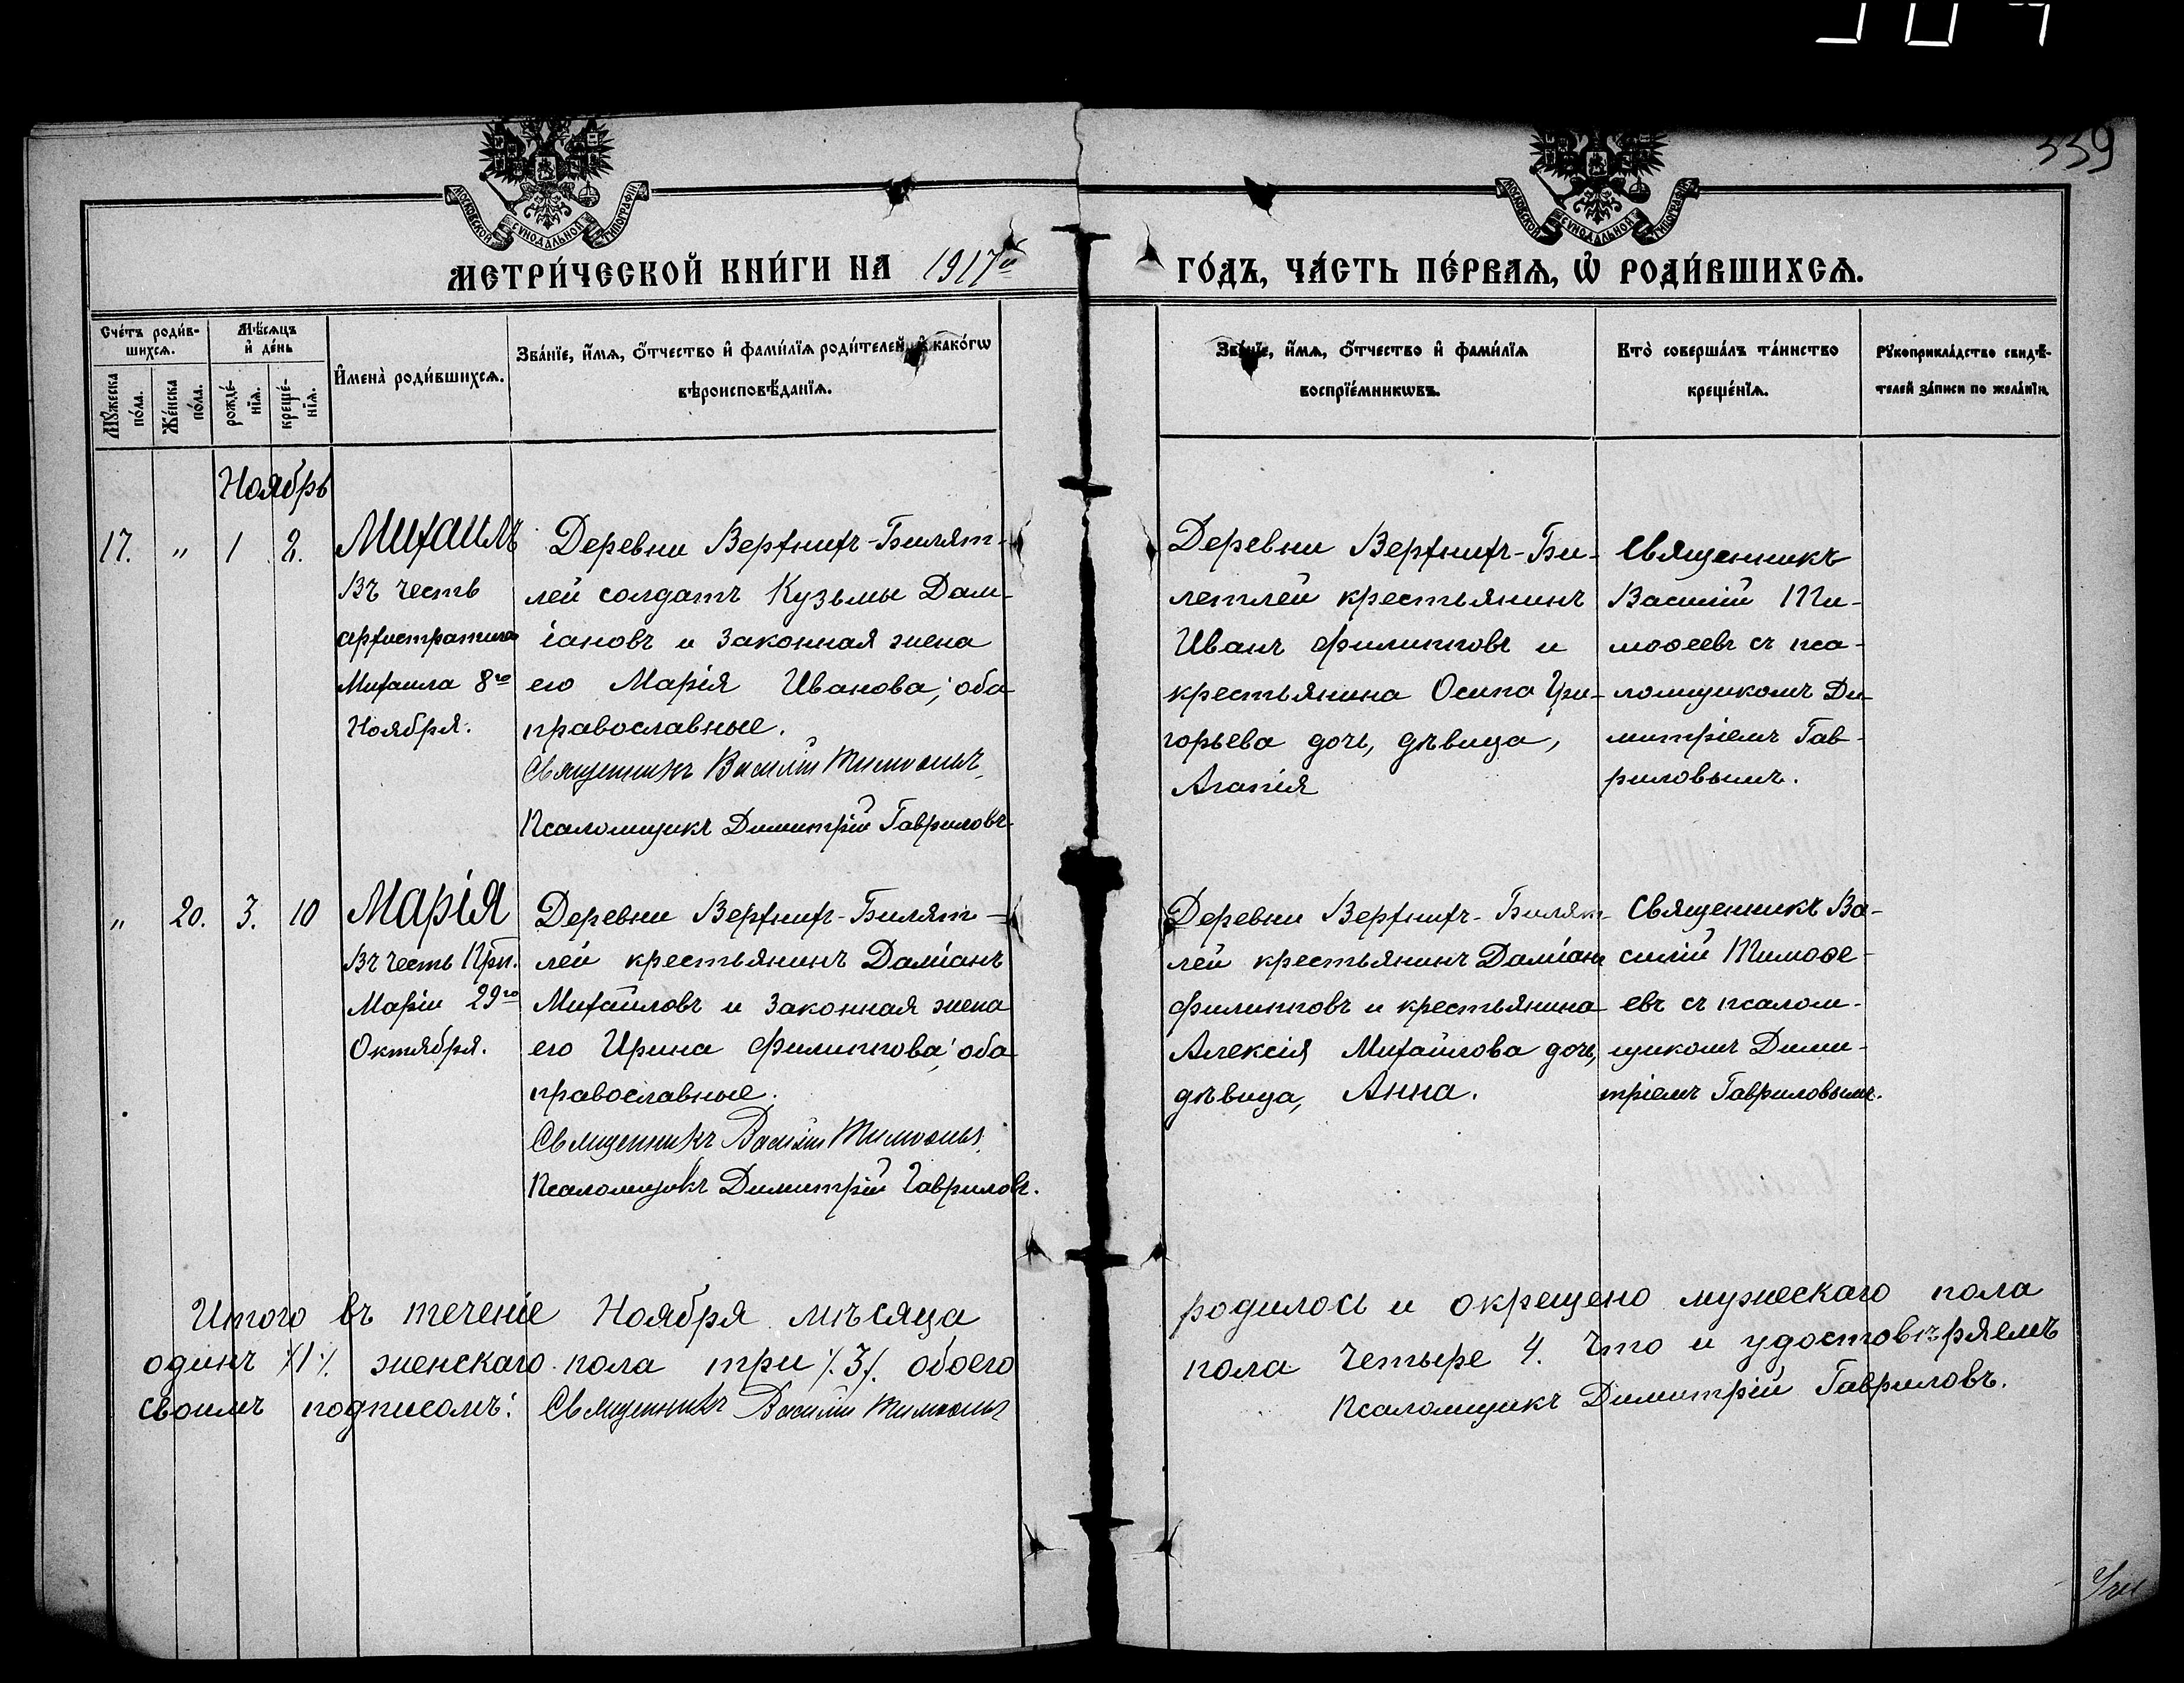 339
МОСКОВСКОЙ СѴНОДАЛЬНОЙ ТИПОГРАФІИ
МОСКОВСКОЙ СѴНОДАЛЬНОЙ ТИПОГРАФІИ
МЕТРИ́ЧЕСКОЙ КНИ́ГИ НА 1917й
ГО́ДЪ, ЧА́СТЬ ПЕ́РВАѦ, Ѡ҆ РОДИ́ВШИХСѦ.
Сче́тъ роди́в-
шихсѧ.
Мꙋ́жеска
по́ла.
Же́нска
по́ла.
Мѣ́сѧцъ
и҆ де́нь
рожде́-
нїѧ.
креще́-
нїѧ.
И҆мена̀ роди́вшихсѧ.
Зва́нїе, и҆́мѧ, ѻ҆́тчество и҆ фамі́лїѧ роди́телей, и҆ како́гѡ
вѣроисповѣ́данїѧ.
Зва́нїе, и҆́мѧ, ѻ҆́тчество и҆ фамі́лїѧ
воспрїе́мникѡвъ.
Кто̀ соверша́лъ та́инство
креще́нїѧ.
Рꙋкоприкла́дство свидѣ́-
телей за́писи по жела́нїю
Ноябрь
17. " 1 2.
Михаилъ
Въ честь
архистратига
Михаила 8го
Ноября.
Деревни Верхнихъ-Билят-
лей солдатъ Кузьмы Дам-
іановъ и законная жена
его Марія Иванова; оба
православные.
Священникъ Василій Тимоѳеевъ
Псаломщикъ Димитрій Гавриловъ
Деревни Верхнихъ-Би-
летлей крестьянинъ
Иванъ Филипповъ и
крестьянина Осипа Гри-
горьева дочь, дѣвица,
Агапія
Священникъ
Василій Ти-
моѳеевъ съ пса-
ломщикомъ Ди-
митріемъ Гав-
риловымъ.
" 20. 3. 10
Марія
Въ честь Прп.
Маріи 29го
Октября.
Деревни Верхнихъ-Билят-
лей крестьянинъ Даміанъ
Михайловъ и законная жена
его Ирина Филиппова; оба
православные.
Священникъ Василій Тимоѳеевъ
Псаломщикъ Димитрій Гавриловъ.
Деревни Верхнихъ-Билят-
лей крестьянинъ Даміанъ
Филипповъ и крестьянина
Алексія Михайлова дочь,
дѣвица, Анна.
Священникъ Ва-
силій Тимоѳе-
евъ съ псалом-
щикомъ Дими-
тріемъ Гавриловымъ.
Итого въ теченіе Ноября мѣсяца родилось и окрещено мужескаго пола
одинъ /1/. женскаго пола три /.3/. обоего пола четыре 4. Что и удостовѣряемъ
своимъ подписомъ: Священникъ Василій Тимоѳеевъ Псаломщикъ Димитрій Гавриловъ.